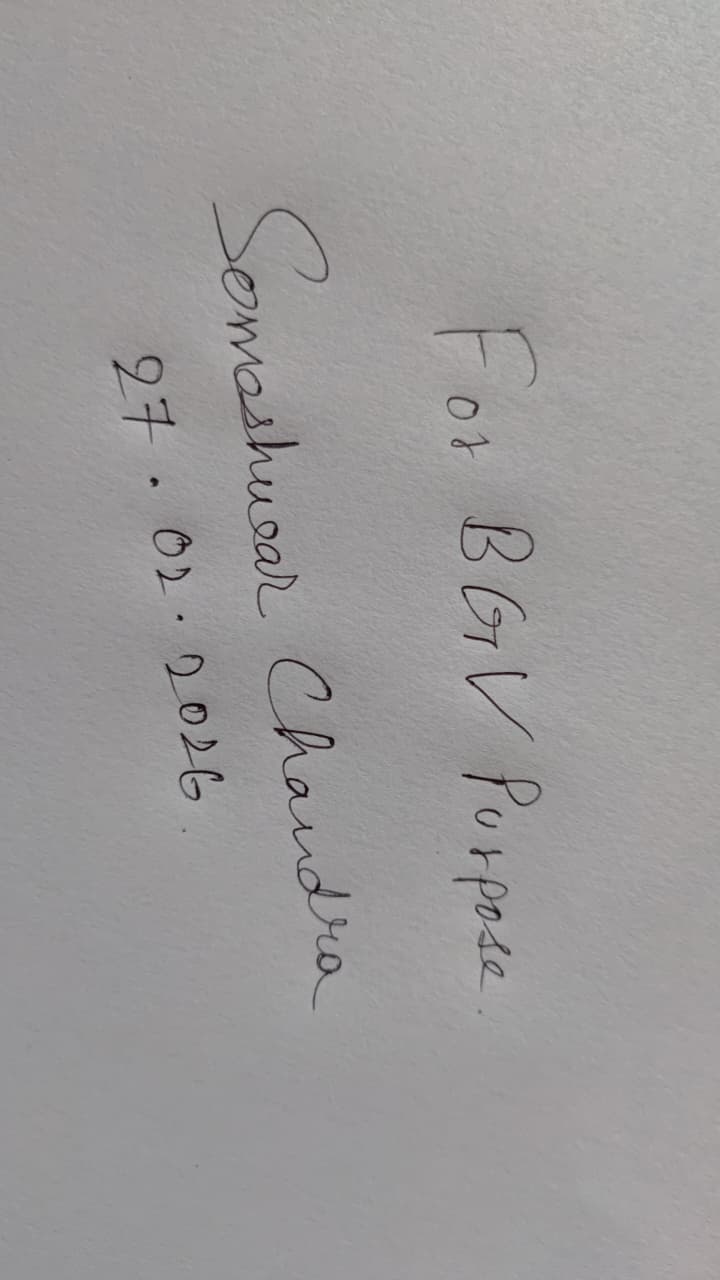 For BGV Purpose.
Someshwar Chandra
27.02.2026.